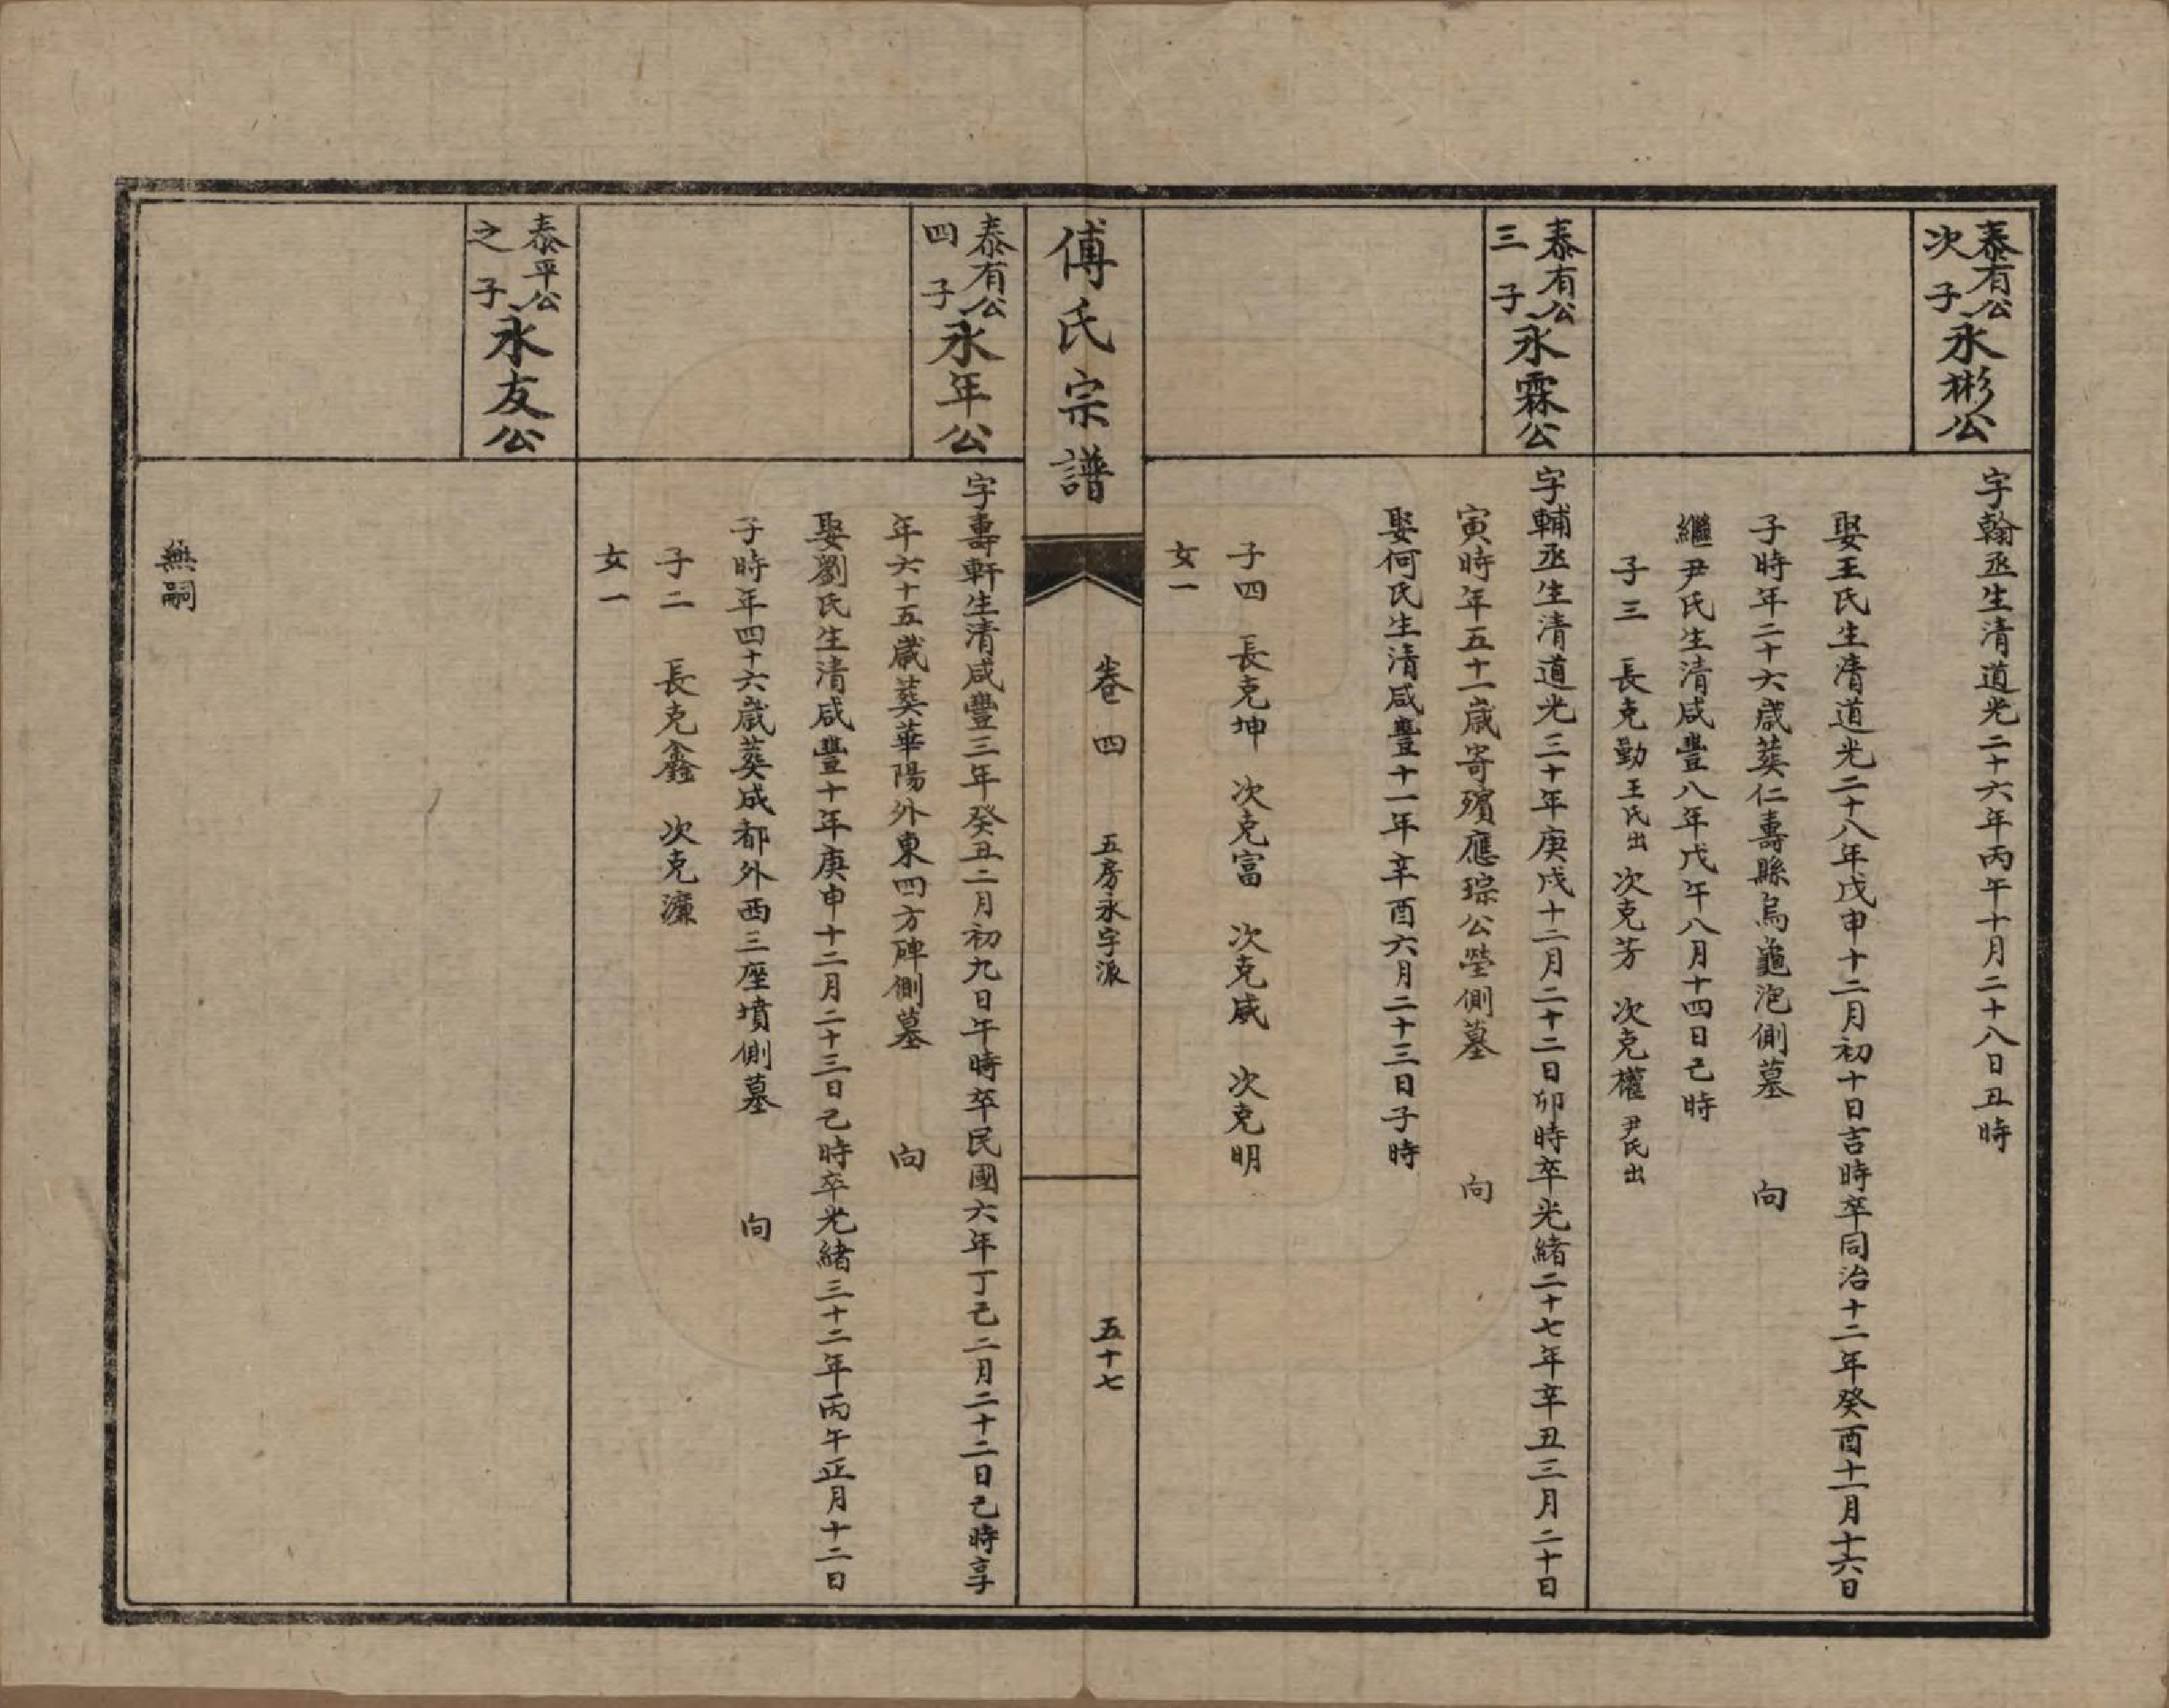 泰有公
次子
永彬公
字翰丞生清道光二十六年丙午十月二十八日丑時
娶王氏生清道光二十八年戊申十二月初十日吉時卒同治十二年癸酉十一月十六日
子時年二十六歲葬仁壽縣烏龜泡側墓　向
繼尹氏生清咸豐八年戊午八月十四日己時
子三　長克勤王氏出　次克芳　次克權尹氏出
泰有公
三子
永霖公
字輔丞生清道光三十年庚戌十二月二十二日卯時卒光緒二十七年辛丑三月二十日
寅時年五十一歲寄殯應琮公塋側墓　向
娶何氏生清咸豐十一年辛酉六月二十三日子時
子四　長克坤　次克富　次克威　次克明
女一
傅氏宗譜
卷四　五房永字派
五十七
泰有公
四子
永年公
字壽軒生清咸豐三年癸丑二月初九日午時卒民國六年丁己二月二十二日己時享
年六十五歲葬華陽外東四方碑側墓　向
娶劉氏生清咸豐十年庚申十二月二十三日己時卒光緒三十二年丙午正月十二日
子時年四十六歲葬成都外西三座墳側墓　向
子二　長克鑫　次克濂
女一
泰平公
之子
永友公
無嗣